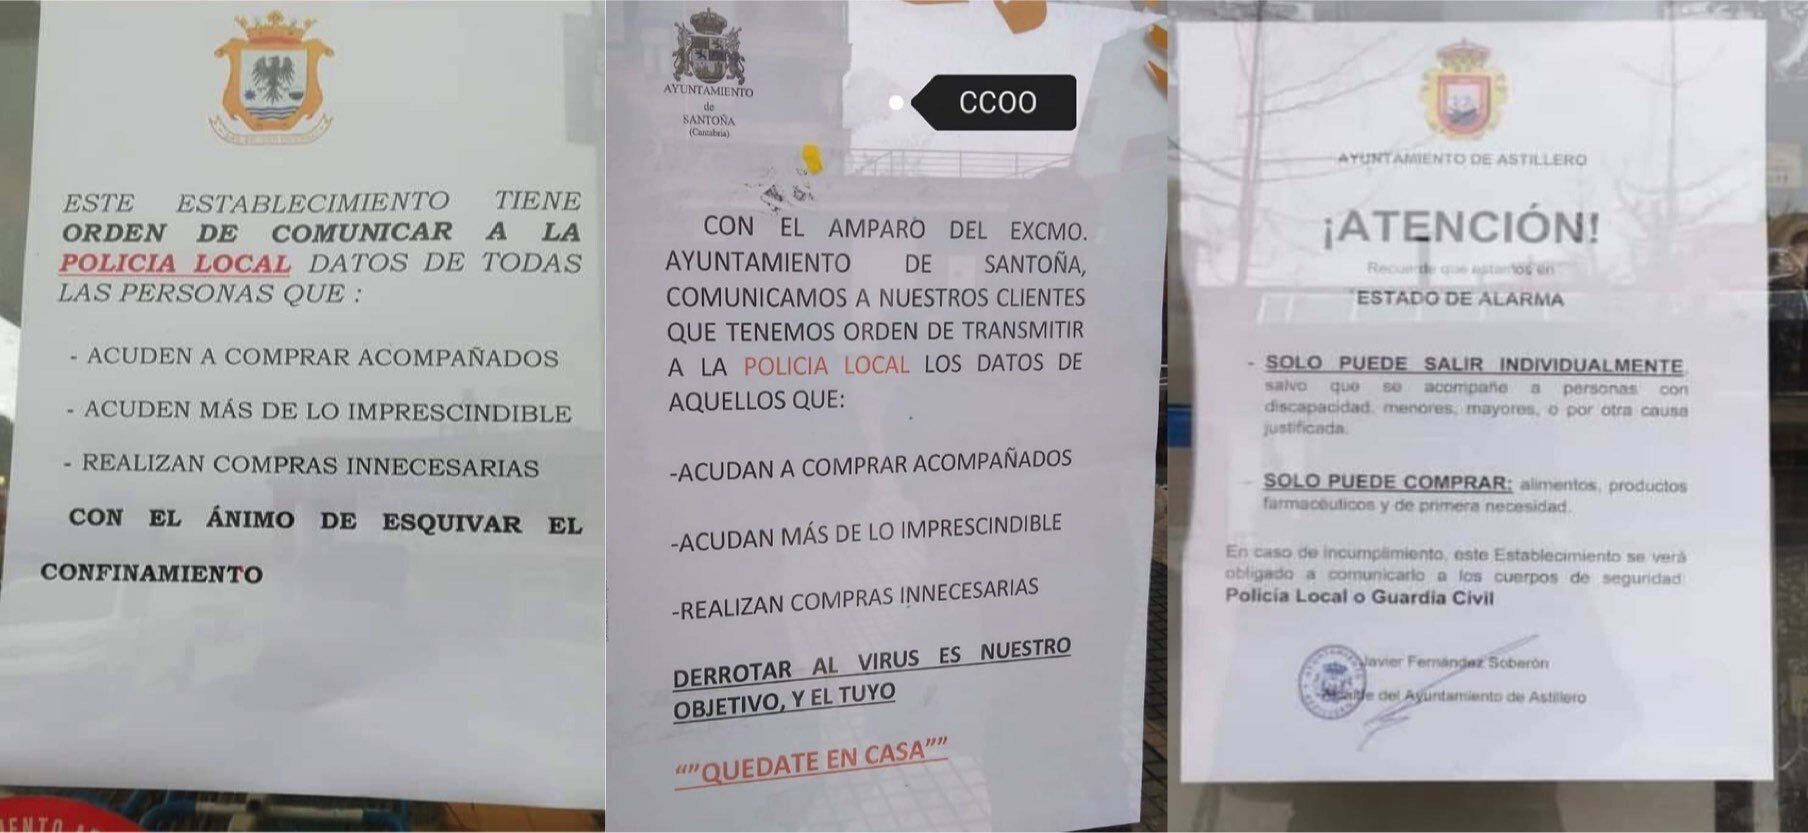 ESTE ESTABLECIMIENTO TIENE
ORDEN DE COMUNICAR A LA
POLICIA LOCAL DATOS DE TODAS
LAS PERSONAS QUE :
- ACUDEN A COMPRAR ACOMPAÑADOS
- ACUDEN MÁS DE LO IMPRESCINDIBLE
- REALIZAN COMPRAS INNECESARIAS
CON EL ÁNIMO DE ESQUIVAR EL
CONFINAMIENTO
AYUNTAMIENTO
de
SANTOÑA
(Cantabria)
CCOO
CON EL AMPARO DEL EXCMO.
AYUNTAMIENTO DE SANTOÑA,
COMUNICAMOS A NUESTROS CLIENTES
QUE TENEMOS ORDEN DE TRANSMITIR
A LA POLICIA LOCAL LOS DATOS DE
AQUELLOS QUE:
-ACUDAN A COMPRAR ACOMPAÑADOS
-ACUDAN MÁS DE LO IMPRESCINDIBLE
-REALIZAN COMPRAS INNECESARIAS
DERROTAR AL VIRUS ES NUESTRO
OBJETIVO, Y EL TUYO
“”QUEDATE EN CASA””
AYUNTAMIENTO DE ASTILLERO
¡ATENCIÓN!
Recuerde que estamos en
ESTADO DE ALARMA
- SOLO PUEDE SALIR INDIVIDUALMENTE,
salvo que se acompañe a personas con
discapacidad, menores, mayores, o por otra causa
justificada.
- SOLO PUEDE COMPRAR: alimentos, productos
farmacéuticos y de primera necesidad.
En caso de incumplimiento, este Establecimiento se verá
obligado a comunicarlo a los cuerpos de seguridad:
Policía Local o Guardia Civil
Javier Fernández Soberón
Alcalde del Ayuntamiento de Astillero